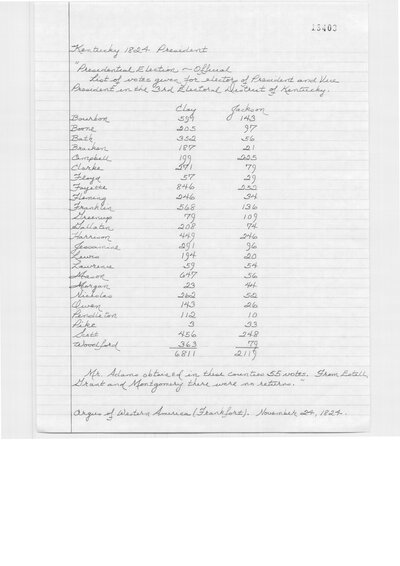 13403
Kentucky 1824 President
"Presidential Election - Official
List of votes given for elector of President and Vice
President in the 3rd Electoral District of Kentucky.
Clay Jackson
Bourbon 599 143
Boone 205 97
Bath 352 56
Bracken 187 21
Campbell 199 225
Clarke 271 79
Floyd 57 29
Fayette 846 252
Fleming 246 34
Franklin 568 136
Greenup 79 109
Gallatin 208 74
Harrison 449 246
Jessamine 291 96
Lewis 194 20
Lawrence 59 54
Mason 647 56
Morgan 23 44
Nicholas 262 52
Owen 143 26
Pendleton 112 10
Pike 3 33
Scott 456 248
Woodford 363 79
6811 2119
Mr. Adams obtained in these counties 55 votes. From Estell,
Grant and Montgomery there were no returns."
Argus of Western America (Frankfort). November 24, 1824.